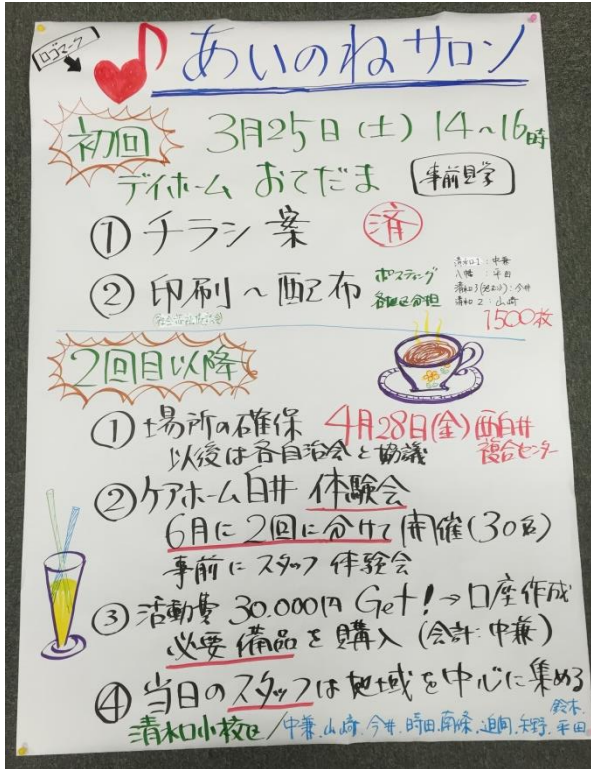 ロゴマーク
あいのねサロン
初回 3月25日(土) 14〜16時
デイホーム おてだま 事前見学
① チラシ案 済
② 印刷〜配布 ポスティング 各地区分担
清水口1:中兼
八幡:平田
清水口2:山崎
1500枚
2回目以降
① 場所の確保 4月28日(金) 西白井複合センター
以後は各自治会と協議
② ケアホーム白井 体験会
6月に2回に分けて開催(30名)
事前にスタッフ体験会
③ 活動費 30.000円 Get!→口座作成
必要備品を購入 (会計:中兼)
④ 当日のスタッフは地域を中心に集める
清水口小校区/中兼.山崎.今井.時田.南條.迫間.矢野.鈴木.平田